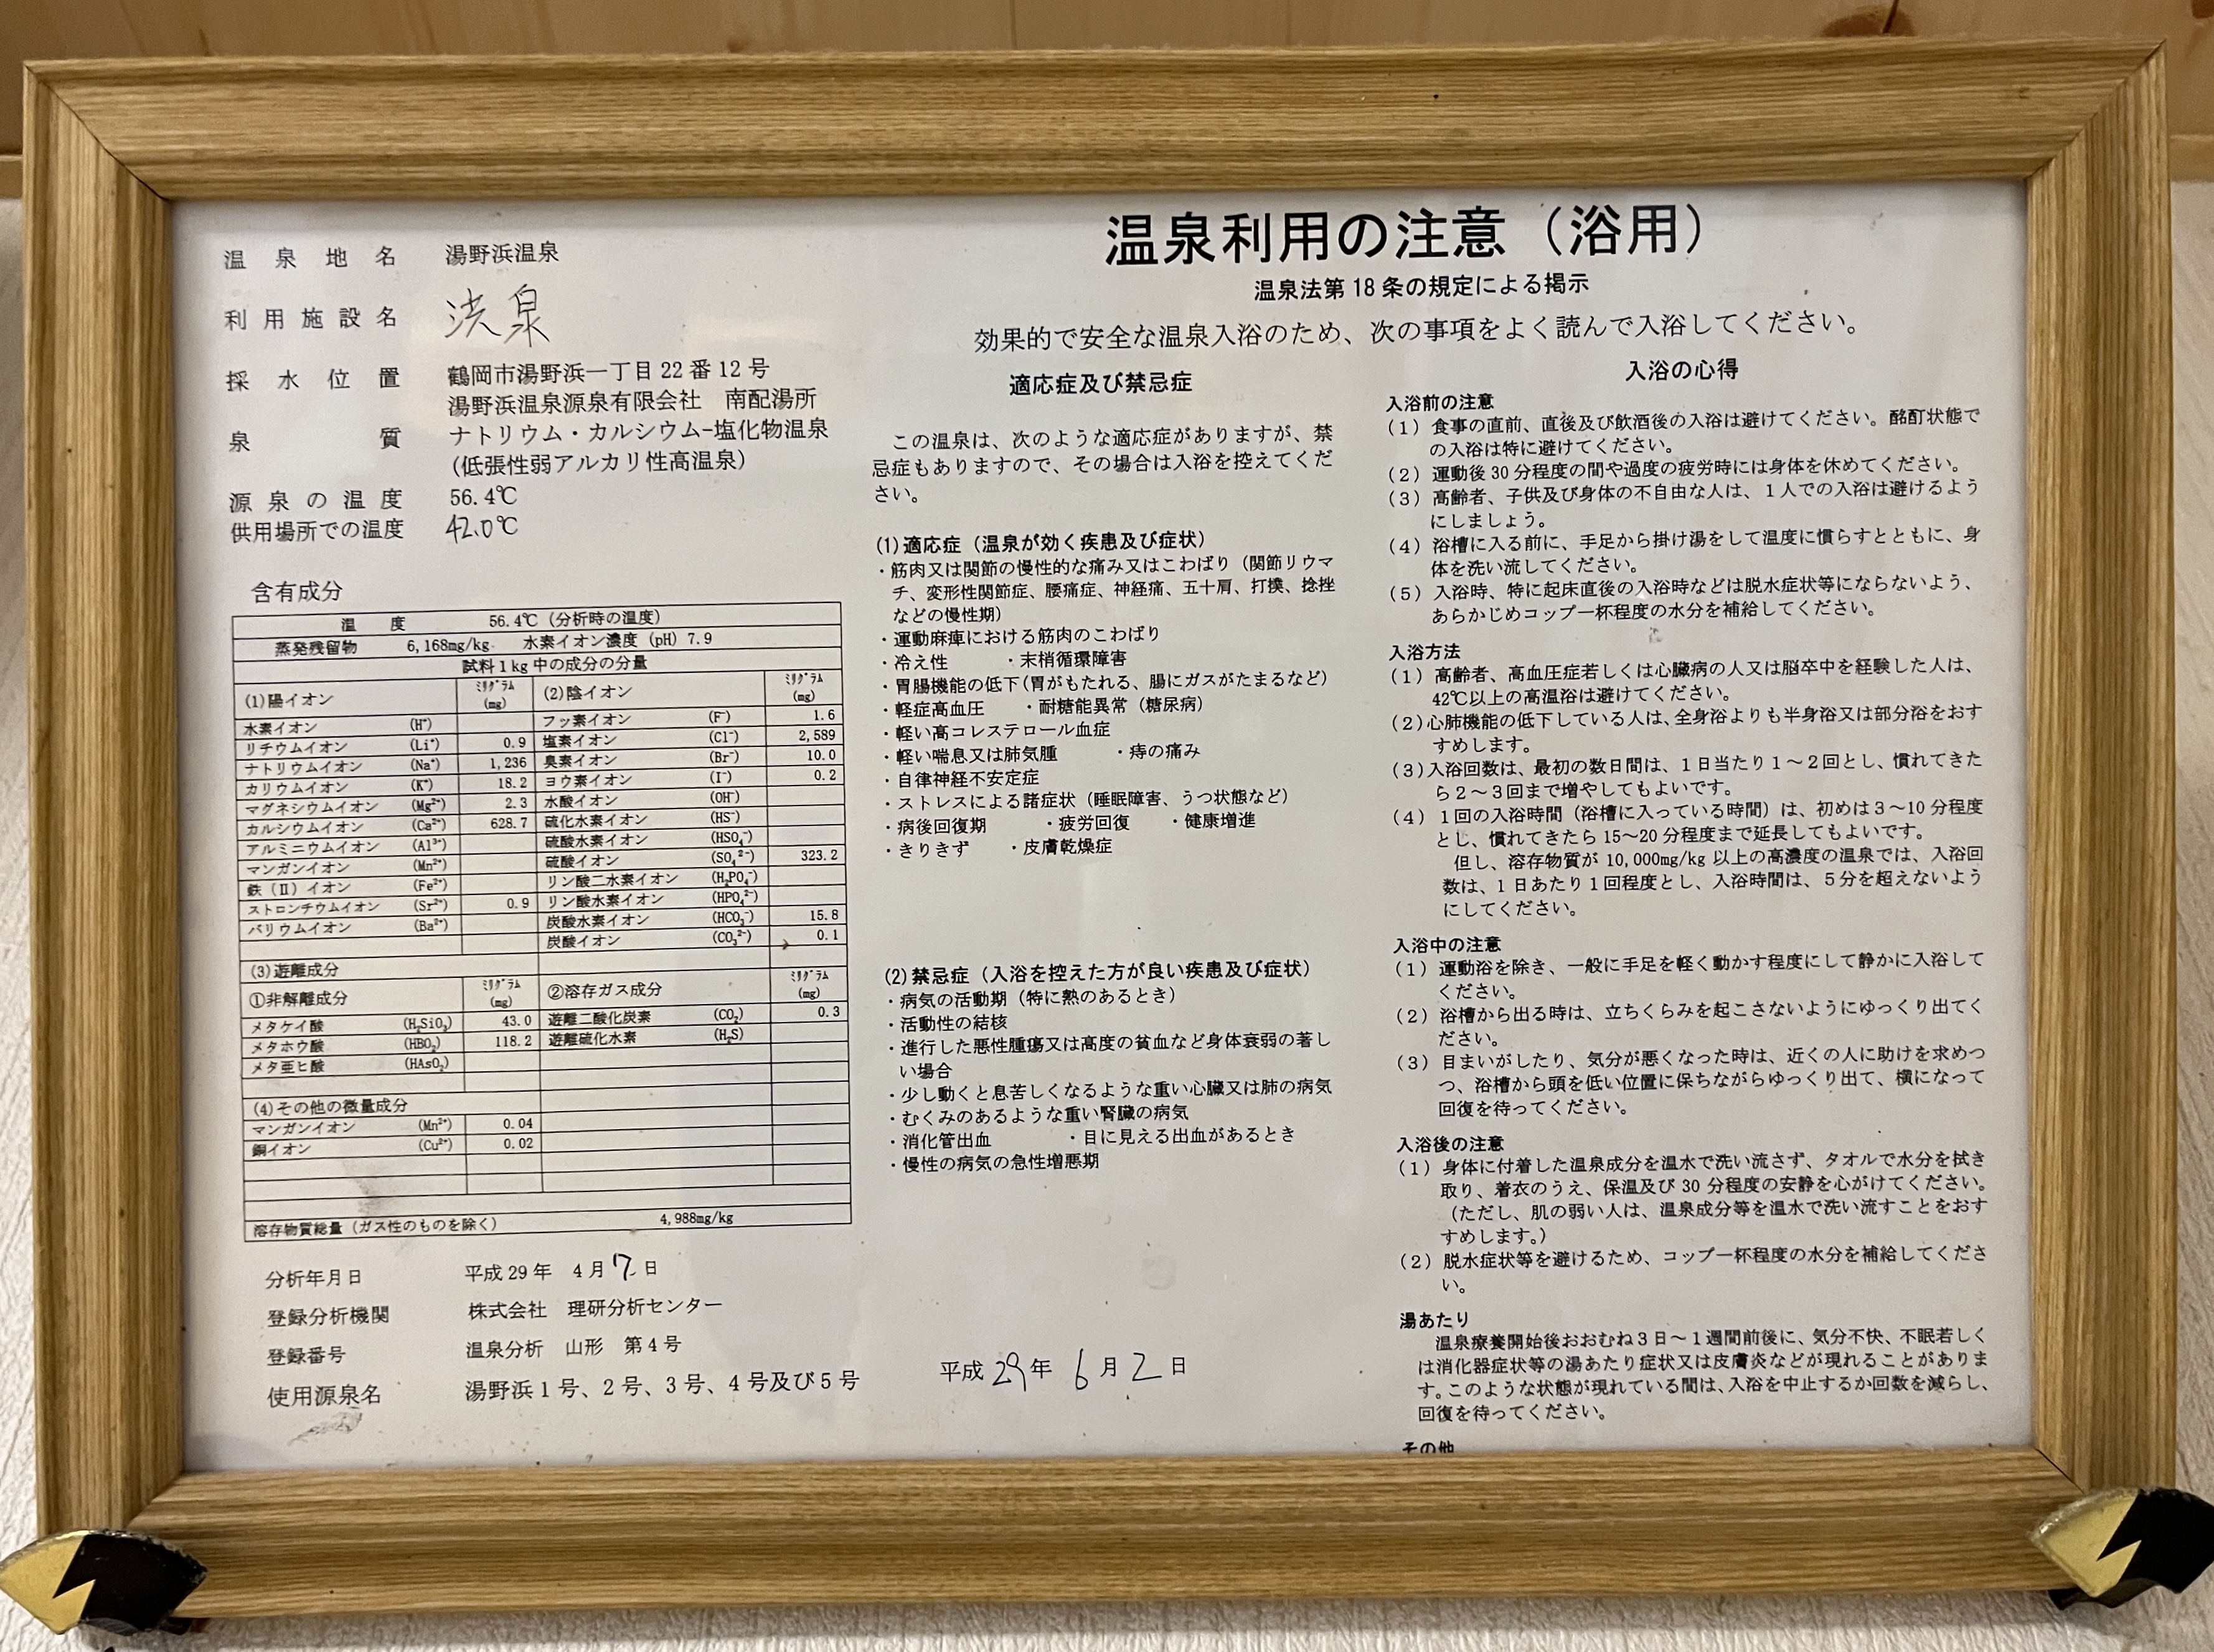 温泉利用の注意（浴用）
温泉法第18条の規定による掲示
効果的で安全な温泉入浴のため、次の事項をよく読んで入浴してください。
温泉地名 湯野浜温泉
利用施設名 洗泉
採水位置 鶴岡市湯野浜一丁目22番12号
湯野浜温泉源泉有限会社 南配湯所
泉質 ナトリウム・カルシウム−塩化物温泉
(低張性弱アルカリ性高温泉)
源泉の温度 56.4℃
供用場所での温度 42.0℃
含有成分
温度 56.4℃（分析時の温度）
蒸発残留物 6,168mg/kg 水素イオン濃度（pH）7.9
試料1kg中の成分の分量
(1)陽イオン ミリグラム(mg) (2)陰イオン ミリグラム(mg)
水素イオン (H⁺) フッ素イオン (F⁻) 1.6
リチウムイオン (Li⁺) 0.9 塩素イオン (Cl⁻) 2,589
ナトリウムイオン (Na⁺) 1,236 臭素イオン (Br⁻) 10.0
カリウムイオン (K⁺) 18.2 ヨウ素イオン (I⁻) 0.2
マグネシウムイオン (Mg²⁺) 2.3 水酸イオン (OH⁻)
カルシウムイオン (Ca²⁺) 628.7 硫化水素イオン (HS⁻)
アルミニウムイオン (Al³⁺) 硫酸水素イオン (HSO₄⁻)
マンガンイオン (Mn²⁺) 硫酸イオン (SO₄²⁻) 323.2
鉄（Ⅱ）イオン (Fe²⁺) リン酸二水素イオン (H₂PO₄⁻)
ストロンチウムイオン (Sr²⁺) 0.9 リン酸水素イオン (HPO₄²⁻)
バリウムイオン (Ba²⁺) 炭酸水素イオン (HCO₃⁻) 15.8
炭酸イオン (CO₃²⁻) 0.1
(3)遊離成分
①非解離成分 ミリグラム(mg) ②溶存ガス成分 ミリグラム(mg)
メタケイ酸 (H₂SiO₃) 43.0 遊離二酸化炭素 (CO₂) 0.3
メタホウ酸 (HBO₂) 118.2 遊離硫化水素 (H₂S)
メタ亜ヒ酸 (HAsO₂)
(4)その他の微量成分
マンガンイオン (Mn²⁺) 0.04
銅イオン (Cu²⁺) 0.02
溶存物質総量（ガス性のものを除く） 4,988mg/kg
分析年月日 平成29年 4月17日
登録分析機関 株式会社 理研分析センター
登録番号 温泉分析 山形 第4号
使用源泉名 湯野浜1号、2号、3号、4号及び5号
適応症及び禁忌症
この温泉は、次のような適応症がありますが、禁
忌症もありますので、その場合は入浴を控えてくだ
さい。
(1)適応症（温泉が効く疾患及び症状）
・筋肉又は関節の慢性的な痛み又はこわばり（関節リウマ
チ、変形性関節症、腰痛症、神経痛、五十肩、打撲、捻挫
などの慢性期）
・運動麻痺における筋肉のこわばり
・冷え性 ・末梢循環障害
・胃腸機能の低下(胃がもたれる、腸にガスがたまるなど)
・軽症高血圧 ・耐糖能異常（糖尿病）
・軽い高コレステロール血症
・軽い喘息又は肺気腫 ・痔の痛み
・自律神経不安定症
・ストレスによる諸症状（睡眠障害、うつ状態など）
・病後回復期 ・疲労回復 ・健康増進
・きりきず ・皮膚乾燥症
(2)禁忌症（入浴を控えた方が良い疾患及び症状）
・病気の活動期（特に熱のあるとき）
・活動性の結核
・進行した悪性腫瘍又は高度の貧血など身体衰弱の著し
い場合
・少し動くと息苦しくなるような重い心臓又は肺の病気
・むくみのあるような重い腎臓の病気
・消化管出血 ・目に見える出血があるとき
・慢性の病気の急性増悪期
平成29年 6月2日
入浴の心得
入浴前の注意
（1）食事の直前、直後及び飲酒後の入浴は避けてください。酩酊状態で
の入浴は特に避けてください。
（2）運動後30分程度の間や過度の疲労時には身体を休めてください。
（3）高齢者、子供及び身体の不自由な人は、1人での入浴は避けるよう
にしましょう。
（4）浴槽に入る前に、手足から掛け湯をして温度に慣らすとともに、身
体を洗い流してください。
（5）入浴時、特に起床直後の入浴時などは脱水症状等にならないよう、
あらかじめコップ一杯程度の水分を補給してください。
入浴方法
（1）高齢者、高血圧症若しくは心臓病の人又は脳卒中を経験した人は、
42℃以上の高温浴は避けてください。
（2）心肺機能の低下している人は、全身浴よりも半身浴又は部分浴をおす
すめします。
（3）入浴回数は、最初の数日間は、1日当たり1～2回とし、慣れてきた
ら2～3回まで増やしてもよいです。
（4）1回の入浴時間（浴槽に入っている時間）は、初めは3～10分程度
とし、慣れてきたら15～20分程度まで延長してもよいです。
但し、溶存物質が10,000mg/kg以上の高濃度の温泉では、入浴回
数は、1日あたり1回程度とし、入浴時間は、5分を超えないよう
にしてください。
入浴中の注意
（1）運動浴を除き、一般に手足を軽く動かす程度にして静かに入浴して
ください。
（2）浴槽から出る時は、立ちくらみを起こさないようにゆっくり出てく
ださい。
（3）目まいがしたり、気分が悪くなった時は、近くの人に助けを求めつ
つ、浴槽から頭を低い位置に保ちながらゆっくり出て、横になって
回復を待ってください。
入浴後の注意
（1）身体に付着した温泉成分を温水で洗い流さず、タオルで水分を拭き
取り、着衣のうえ、保温及び30分程度の安静を心がけてください。
（ただし、肌の弱い人は、温泉成分等を温水で洗い流すことをおす
すめします。）
（2）脱水症状等を避けるため、コップ一杯程度の水分を補給してくださ
い。
湯あたり
温泉療養開始後おおむね3日～1週間前後に、気分不快、不眠若しく
は消化器症状等の湯あたり症状又は皮膚炎などが現れることがありま
す。このような状態が現れている間は、入浴を中止するか回数を減らし、
回復を待ってください。
その他